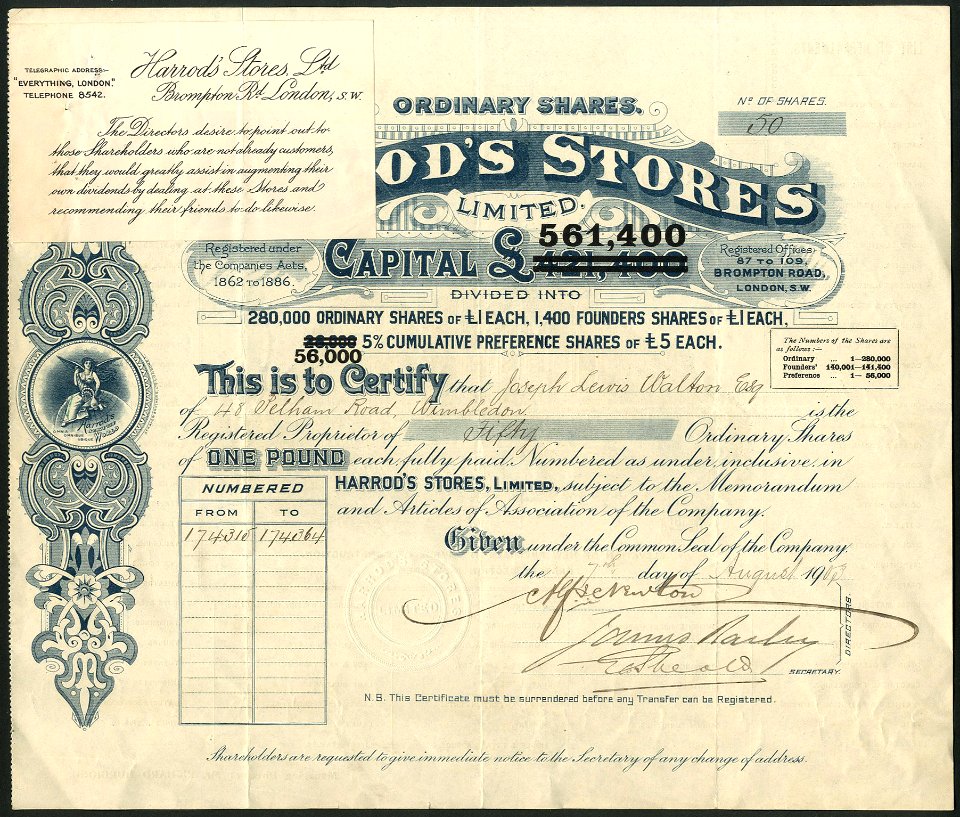 TELEGRAPHIC ADDRESS:-
"EVERYTHING, LONDON."
TELEPHONE 8542.
Harrod's Stores, Ltd
Brompton Rd. London, S.W.
The Directors desire to point out to
those Shareholders who are not already customers,
that they would greatly assist in augmenting their
own dividends by dealing at these Stores and
recommending their friends to do likewise.
ORDINARY SHARES.
No OF SHARES.
50
ROD'S STORES
LIMITED.
Registered under
the Companies Acts,
1862 TO 1886.
CAPITAL £421,400
561,400
Registered Offices:
87 TO 109,
BROMPTON ROAD,
LONDON, S.W.
DIVIDED INTO
280,000 ORDINARY SHARES OF £1 EACH, 1,400 FOUNDERS SHARES OF £1 EACH,
5% CUMULATIVE PREFERENCE SHARES OF £5 EACH.
56,000
The Numbers of the Shares are
as follows:—
Ordinary ... 1—280,000
Founders' 140,001—141,400
Preference ... 1— 56,000
This is to Certify that Joseph Lewis Walton Esq
of 48 Pelham Road, Wimbledon is the
Registered Proprietor of Fifty Ordinary Shares
of ONE POUND each, fully paid, Numbered as under, inclusive, in
HARROD'S STORES, LIMITED, subject to the Memorandum
and Articles of Association of the Company.
NUMBERED
FROM TO
174315 174364
Given under the Common Seal of the Company
the 7th day of August 19
HARROD'S STORES
LIMITED
DIRECTORS.
SECRETARY.
N.B. This Certificate must be surrendered before any Transfer can be Registered.
Shareholders are requested to give immediate notice to the Secretary of any change of address.